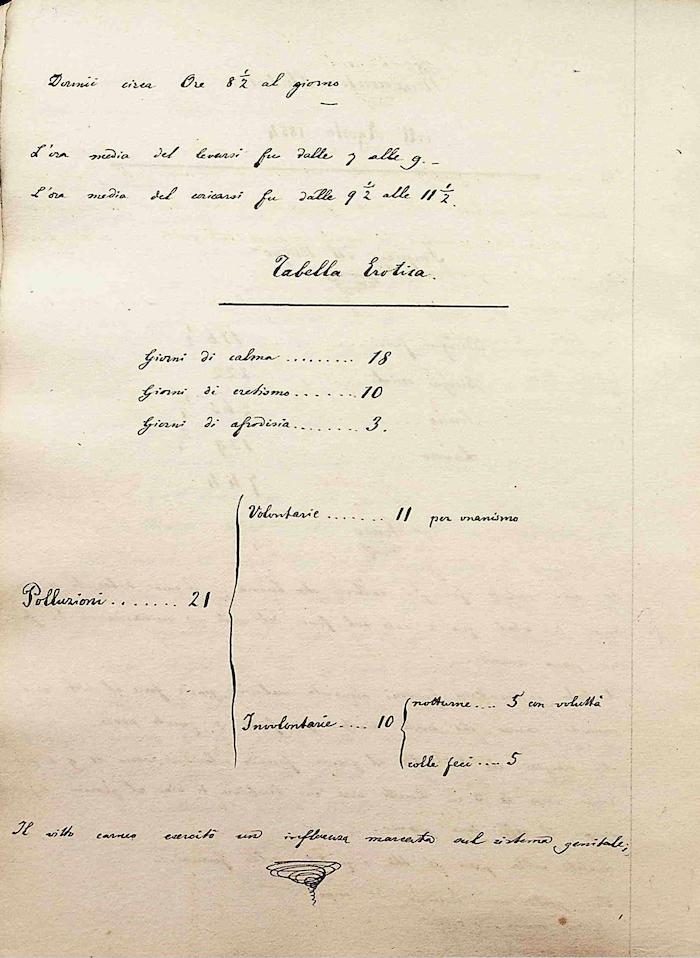 Dormii circa Ore 8 1/2 al giorno
L'ora media del levarsi fu dalle 7 alle 9. –
L'ora media del coricarsi fu dalle 9 1/2 alle 11 1/2.
Tabella Erotica.
Giorni di calma ......... 18
Giorni di eretismo....... 10
Giorni di afrodisia........ 3.
Volontarie ....... 11 per onanismo
Polluzioni ........ 21
notturne.... 5 con voluttà
Involontarie .... 10
colle feci .... 5
Il vitto carneo esercitò un influenza marcata sul sistema genitale;